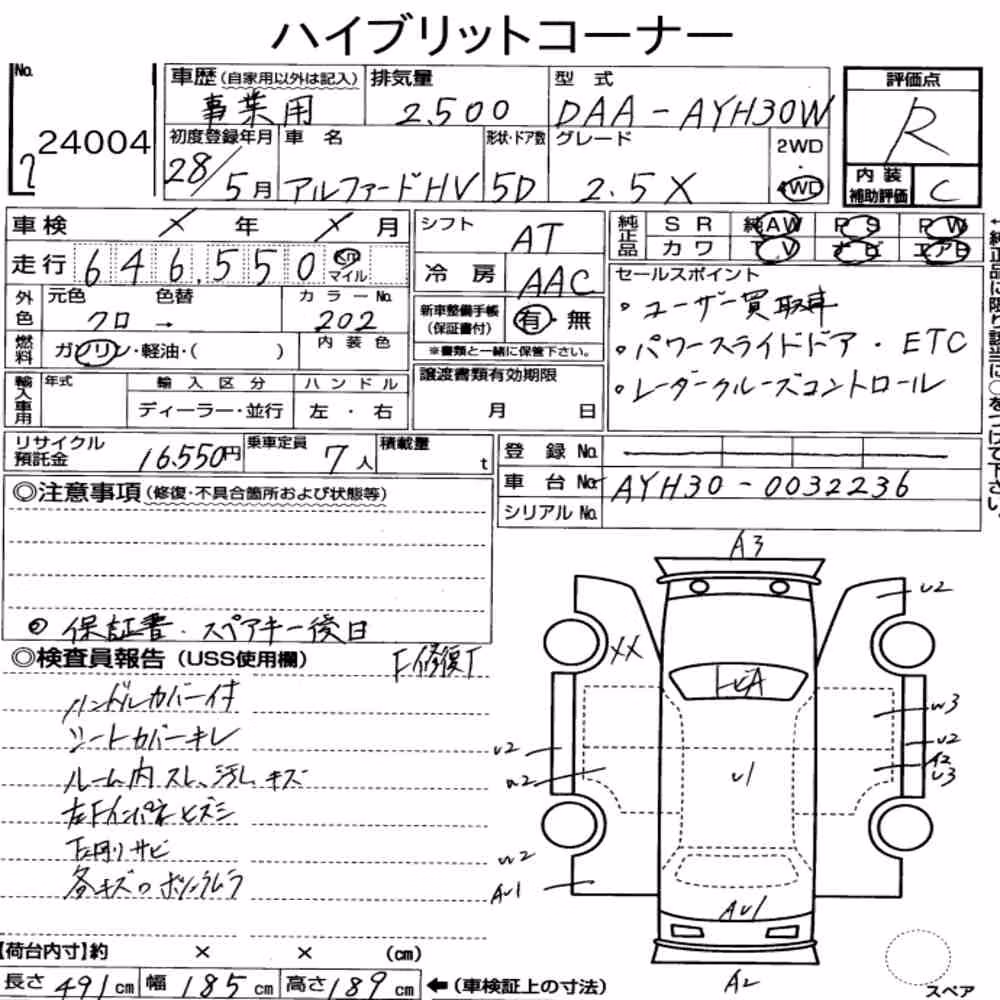 ハイブリットコーナー
No. 2 24004
車歴(自家用以外は記入) 事業用
排気量 2.500
型 式 DAA-AYH30W
初度登録年月 28/5月
車 名 アルファードHV
形状・ドア数 5D
グレード 2.5X
2WD ・ 4WD
評価点 R
内装補助評価 C
車検 X 年 X 月
走行 646,550 Km マイル
外色 元色 クロ → 色替 カラーNo. 202
燃料 ガソリン・軽油・( ) 内装色
輸入車用 年式 輸入区分 ディーラー・並行 ハンドル 左・右
シフト AT
冷房 AAC
新車整備手帳(保証書付) 有・無
※書類と一緒に保管下さい。
譲渡書類有効期限 月 日
純正品 SR 純AW PS PW
カワ TV ナビ エアB
セールスポイント
・ユーザー買取車
・パワースライドドア・ETC
・レーダークルーズコントロール
リサイクル預託金 16.550円
乗車定員 7人
積載量 t
登録No.
車台No. AYH30-0032236
シリアルNo.
◎注意事項(修復・不具合箇所および状態等)
◎ 保証書・スペアキー後日
◎検査員報告(USS使用欄)
ハンドルカバー付
シートカバーキレ
ルーム内スレ、汚レ、キズ
各キズ
A3
U2
XX
W3
U2
A2
U3
U2
U1
W2
AU1
AU1
A2
スペア
【荷台内寸】約 × × (cm)
長さ 491cm 幅 185cm 高さ 189cm ←(車検証上の寸法)